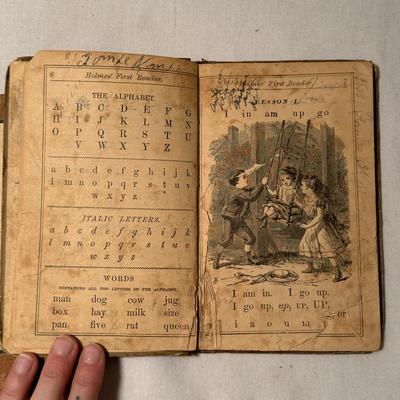 6 Holmes' First Reader.
THE ALPHABET.
A B C D E F G
H I J K L M N
O P Q R S T U
V W X Y Z
a b c d e f g h i j k
l m n o p q r s t u v
w x y z
ITALIC LETTERS.
a b c d e f g h i j k
l m n o p q r s t u v
w x y z
WORDS
CONTAINING ALL THE LETTERS OF THE ALPHABET.
man dog cow jug
box hay milk size
pan five rat queen
Holmes' First Reader. 7
LESSON I.
I in am up go
I am in. I go up.
I go up, up, up, UP.
i a o u m